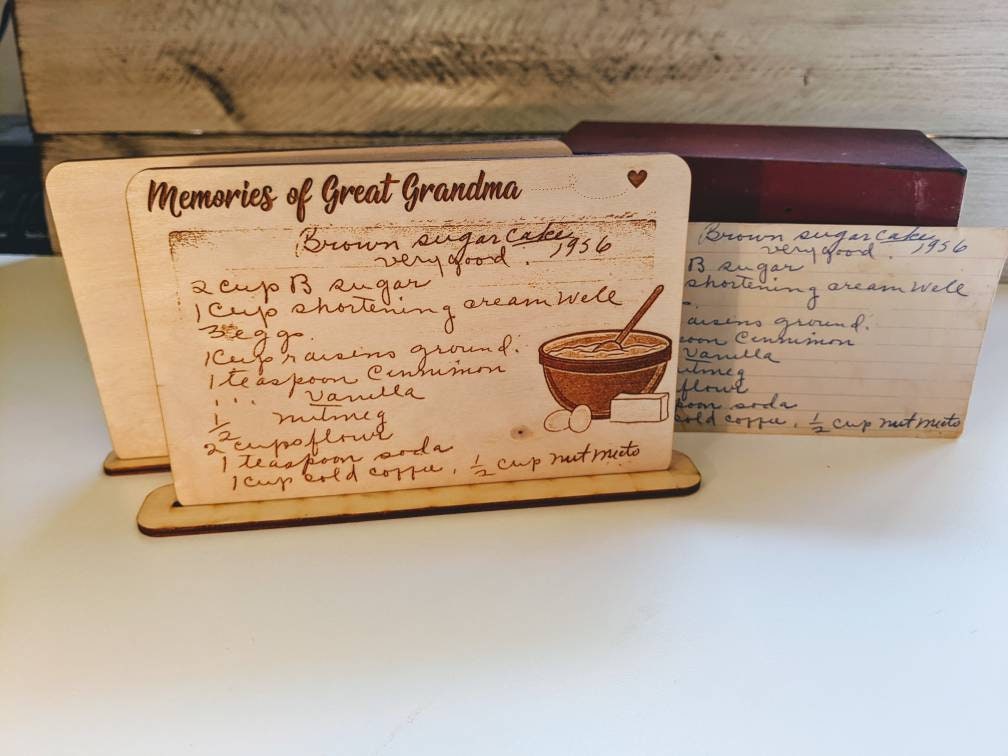 Memories of Great Grandma
Brown sugar cake 1956
very good.
2 cup B sugar
1 Cup shortening cream well
3 eggs.
1 Cup raisins ground.
1 teaspoon Cinnimon
" " Vanilla
1/2 nutmeg
2 cups flour
1 teaspoon soda
1 cup cold coffee, 1/2 cup nut meats
Brown sugar cake 1956
very good.
B sugar
shortening cream well
aisins ground.
poon Cinnimon
Vanilla
utmeg
flour
poon soda
cold coffee, 1/2 cup nut meats